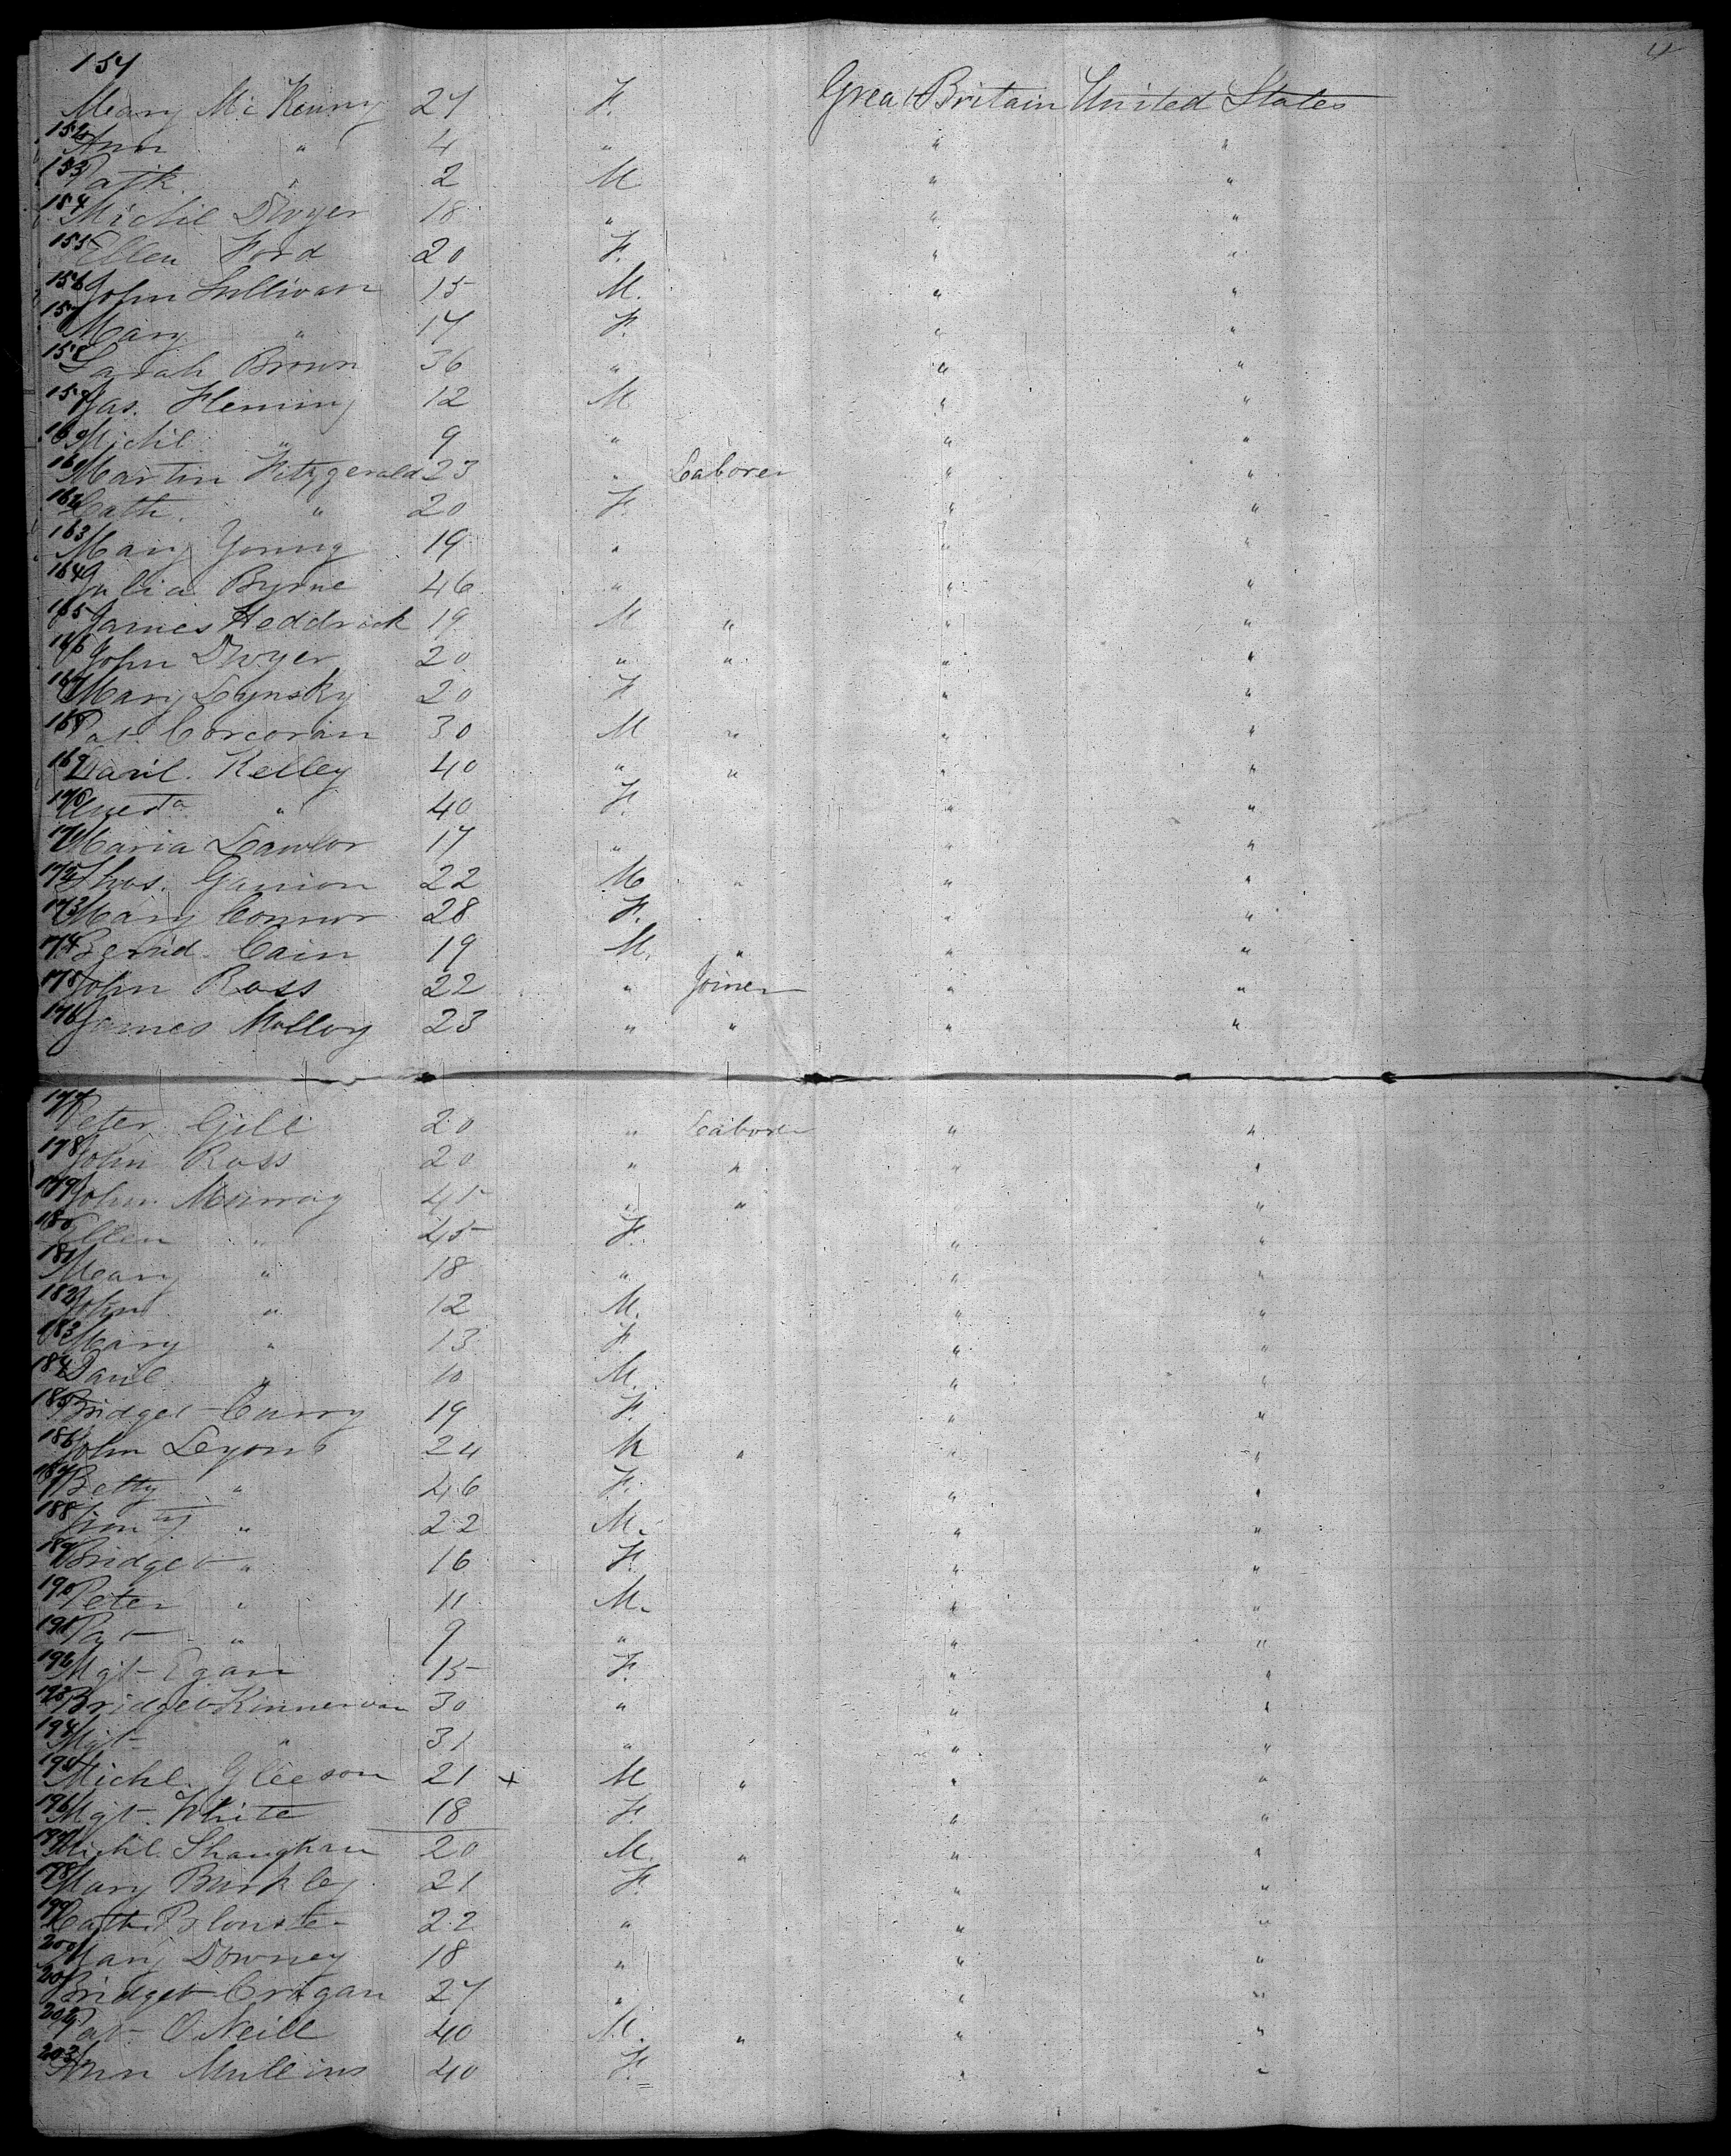 4
151
Mary McKenny 27 F. Great Britain United States
152 Ann " 4 " " "
153 Patk " 2 M " "
154 Michl Dwyer 18 " " "
155 Ellen Ford 20 F. " "
156 John Sullivan 15 M. " "
157 Mary " 17 F. " "
158 Sarah Brown 36 " " "
159 Jas. Fleming 12 M " "
160 Michl " 9 " " "
161 Martin Fitzgerald 23 " Laborer " "
162 Cath. " 20 F. " "
163 Mary Young 19 " " "
164 Julia Byrne 46 " " "
165 James Heddrick 19 M " " "
166 John Dwyer 20 " " " "
167 Mary Lynsky 20 F " "
168 Pat. Corcoran 30 M " " "
169 Danl. Kelley 40 " " " "
170 " 40 F. " "
171 Maria Lawlor 17 " " "
172 Thos. Gannon 22 M " " "
173 Mary Connor 28 F. " "
174 Cain 19 M. " " "
175 John Ross 22 " Joiner " "
176 James Molloy 23 " " " "
177 Peter Gill 20 " Laborer " "
178 John Ross 20 " " " "
179 John Murray 45 " " " "
180 Ellen " 45 F. " "
181 Mary " 18 " " "
182 John " 12 M. " "
183 Mary " 13 F " "
184 Danl " 10 M. " "
185 Bridget Curry 19 F. " "
186 John Lyons 24 M " " "
187 Betty " 46 F. " "
188 Timty " 22 M. " "
189 Bridget " 16 F. " "
190 Peter " 11 M. " "
191 Pat " 9 " " "
192 Mgt Egan 15 F. " "
193 Bridget Kinnervan 30 " " "
194 Mgt " 31 " " "
195 Michl. Gleeson 21 + M " " "
196 Mgt. White 18 F. " "
197 Michl. Shaughan 20 M. " " "
198 Mary Burkley 21 F. " "
199 Cath. 22 " " "
200 Mary Downey 18 " " "
201 Bridget Crogan 27 " " "
202 Pat O'Neill 40 M. " " "
203 Ann Mullins 40 F. " "